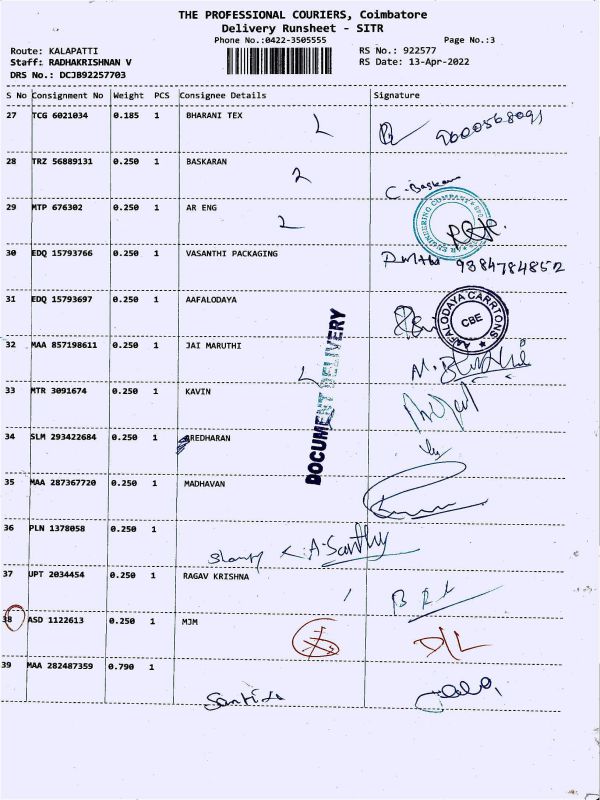 THE PROFESSIONAL COURIERS, Coimbatore
Delivery Runsheet - SITR
Phone No.:0422-3505555 Page No.:3
Route: KALAPATTI RS No.: 922577
Staff: RADHAKRISHNAN V RS Date: 13-Apr-2022
DRS No.: DCJB92257703
S No Consignment No Weight PCS Consignee Details Signature
27 TCG 6021034 0.185 1 BHARANI TEX 9600568091
28 TRZ 56889131 0.250 1 BASKARAN 2
C. Baskaran
29 MTP 676302 0.250 1 AR ENG 2
ENGINEERING COMPANY
30 EDQ 15793766 0.250 1 VASANTHI PACKAGING
9384784852
31 EDQ 15793697 0.250 1 AAFALODAYA
AAFALODAYA CARRTONS CBE
32 MAA 857198611 0.250 1 JAI MARUTHI
DOCUMENT DELIVERY
33 MTR 3091674 0.250 1 KAVIN
34 SLM 293422684 0.250 1 REDHARAN
35 MAA 287367720 0.250 1 MADHAVAN
36 PLN 1378058 0.250 1
A. Santhy
37 UPT 2034454 0.250 1 RAGAV KRISHNA
38 ASD 1122613 0.250 1 MJM D/L
39 MAA 282487359 0.790 1